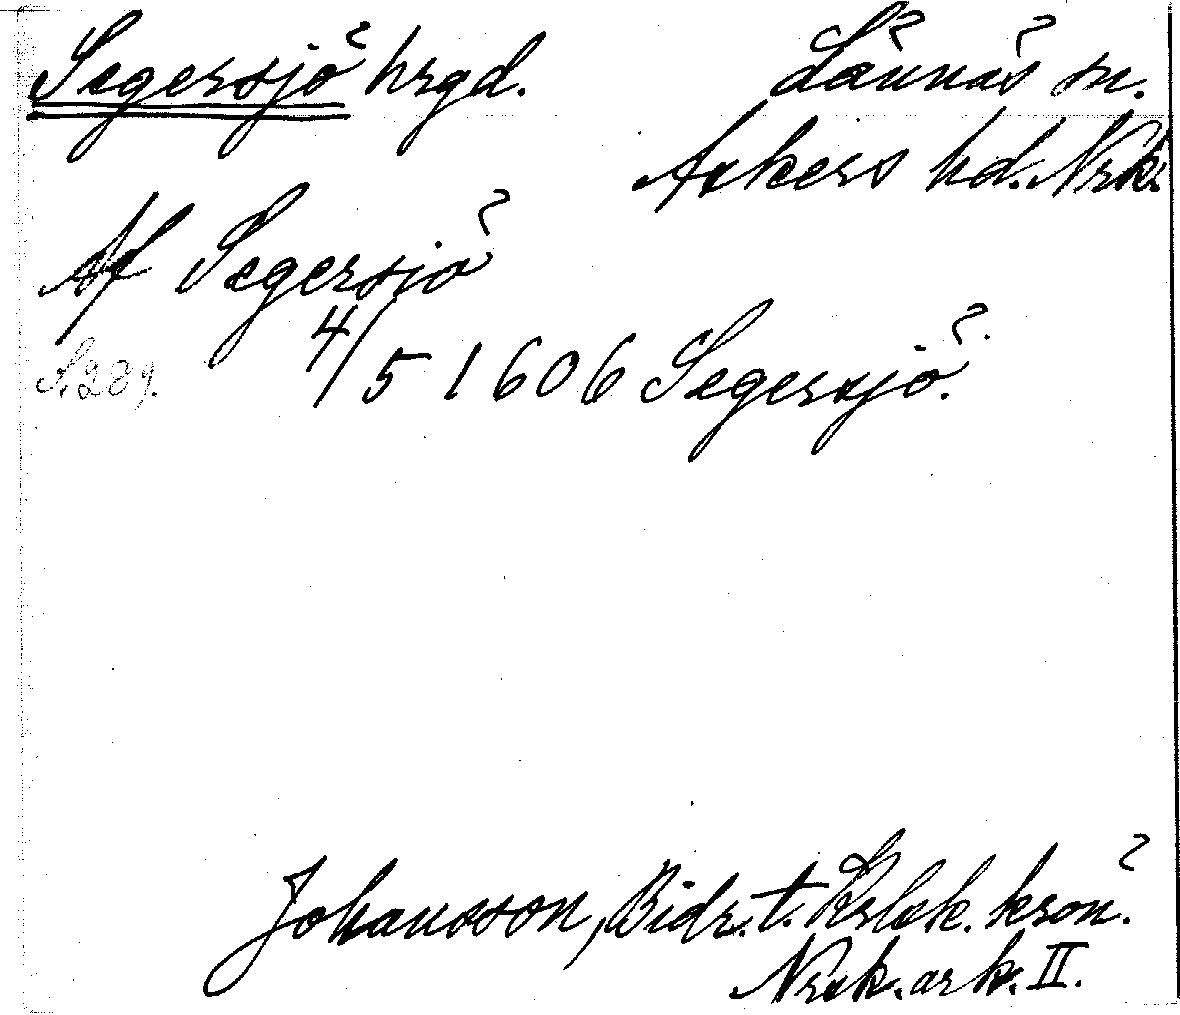 Segersjö hrgd.
Lännäs sn.
Askers hd. Nrk.
Af Segersjö
S. 289.
4/5 1606 Segersjö.
Johansson, Bidr. t. Kslek. kron.
Nrsk. ark. II.